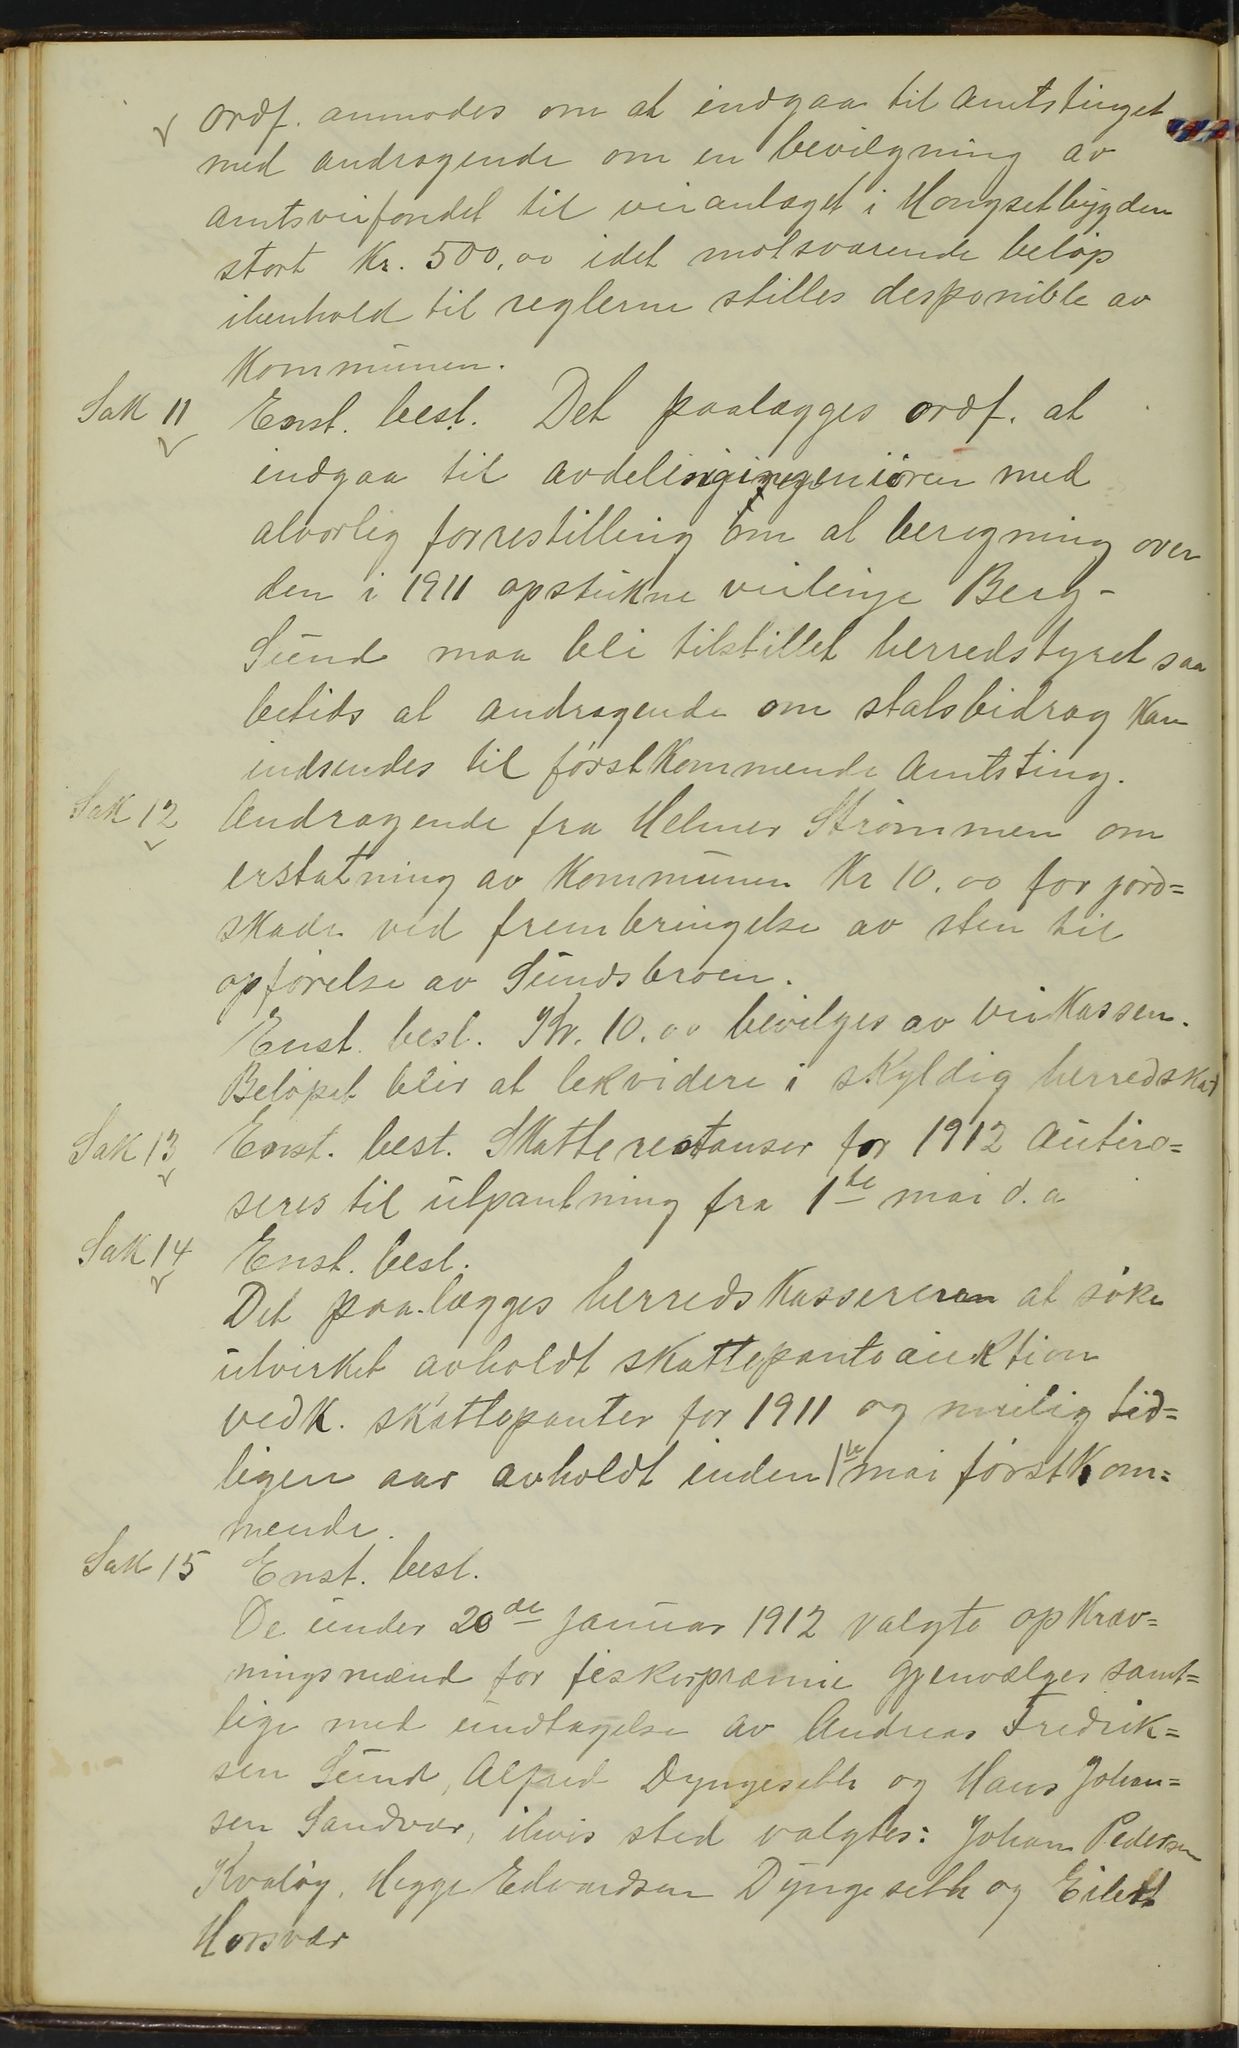 ordf. anmodes om at indgaa til Amtstinget
med andragende om en bevilgning av
amtsveifondet til veianlæget i Hongsetbygden
stort Kr. 500,00 idet motsvarende beløp
ihenhold til reglerne stilles desponible av
Kommunen.
Sak 11 Enst. besl. Det paalægges ordf. at
indgaa til avdelingsingeniøren med
alvorlig forrestilling om at beregning over
den i 1911 opstukne veilinje Berg-
Sund maa bli tilstillet herredstyret saa
betids at andragende om statsbidrag kan
indsendes til førstkommende Amtsting.
Sak 12 Andragende fra Helmer Strømmen om
erstatning av Kommunen Kr 10.00 for jord=
skade ved frembringelse av sten til
opførelse av Sundsbroen.
Enst. besl. Kr. 10.00 bevilges av veikassen.
Beløpet blir at lekvidere i skyldig herredskat
Sak 13 Enst. besl. Skatterestanser for 1912 Autiro=
seres til utpantning fra 1ste mai d. a
Sak 14 Enst. besl.
Det paa-lægges herredskassereren at søke
utvirket avholdt skattepantoauktion
vedk. skattepanter for 1911 og mulig tid=
ligere aar avholdt inden 1ste mai førstkom=
mende.
Sak 15 Enst. besl.
De under 20de januar 1912 valgte opkræv=
ningsmænd for fiskerpræmie gjenvælges samt=
lige med undtagelse av Andreas Fredrik=
sen Sund, Alfred Dyngeseth og Hans Johan=
sen Sandvær, ihvis sted valgtes: Johan Pedersen
Kvaløy, Hegge Edvardsen Dyngeseth og Eilert
Horsvær